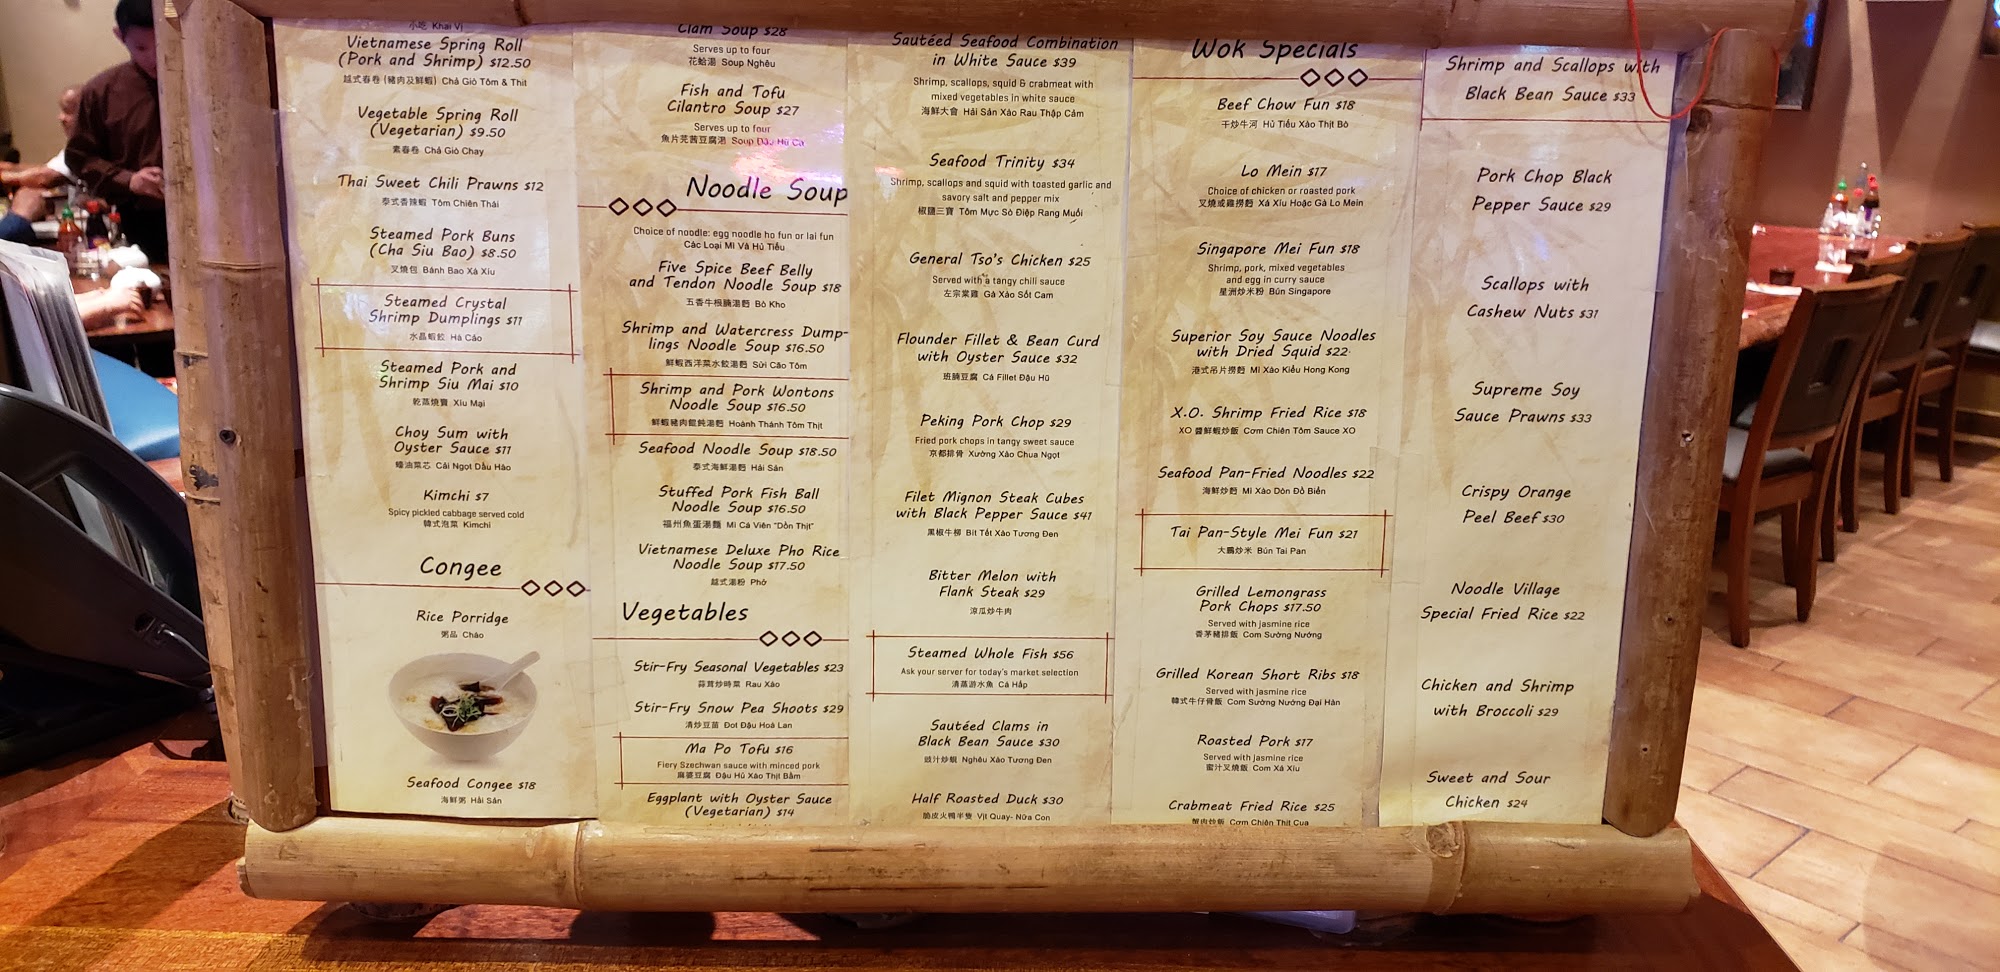 小吃 Khai Vị
Vietnamese Spring Roll
(Pork and Shrimp) $12.50
越式春卷 (豬肉及鮮蝦) Chả Giò Tôm & Thịt
Vegetable Spring Roll
(Vegetarian) $9.50
素春卷 Chả Giò Chay
Thai Sweet Chili Prawns $12
泰式香辣蝦 Tôm Chiên Thái
Steamed Pork Buns
(Cha Siu Bao) $8.50
叉燒包 Bánh Bao Xá Xíu
Steamed Crystal
Shrimp Dumplings $11
水晶蝦餃 Há Cảo
Steamed Pork and
Shrimp Siu Mai $10
乾蒸燒賣 Xíu Mại
Choy Sum with
Oyster Sauce $11
蠔油菜芯 Cải Ngọt Dầu Hào
Kimchi $7
Spicy pickled cabbage served cold
韓式泡菜 Kimchi
Congee
Rice Porridge
粥品 Cháo
Seafood Congee $18
海鮮粥 Hải Sản
Clam Soup $28
Serves up to four
花蛤湯 Soup Nghêu
Fish and Tofu
Cilantro Soup $27
Serves up to four
魚片芫茜豆腐湯 Soup Đậu Hủ Cá
Noodle Soup
Choice of noodle: egg noodle ho fun or lai fun
Các Loại Mì Và Hủ Tiếu
Five Spice Beef Belly
and Tendon Noodle Soup $18
五香牛根腩湯麵 Bò Kho
Shrimp and Watercress Dump-
lings Noodle Soup $16.50
鮮蝦西洋菜水餃湯麵 Sủi Cảo Tôm
Shrimp and Pork Wontons
Noodle Soup $16.50
鮮蝦豬肉餛飩湯麵 Hoành Thánh Tôm Thịt
Seafood Noodle Soup $18.50
泰式海鮮湯麵 Hải Sản
Stuffed Pork Fish Ball
Noodle Soup $16.50
福州魚蛋湯麵 Mì Cá Viên "Dồn Thịt"
Vietnamese Deluxe Pho Rice
Noodle Soup $17.50
越式湯粉 Phở
Vegetables
Stir-Fry Seasonal Vegetables $23
蒜茸炒時菜 Rau Xào
Stir-Fry Snow Pea Shoots $29
清炒豆苗 Đọt Đậu Hoà Lan
Ma Po Tofu $16
Fiery Szechwan sauce with minced pork
麻婆豆腐 Đậu Hủ Xào Thịt Bằm
Eggplant with Oyster Sauce
(Vegetarian) $14
Sautéed Seafood Combination
in White Sauce $39
Shrimp, scallops, squid & crabmeat with
mixed vegetables in white sauce
海鮮大會 Hải Sản Xào Rau Thập Cẩm
Seafood Trinity $34
Shrimp, scallops and squid with toasted garlic and
savory salt and pepper mix
椒鹽三寶 Tôm Mực Sò Điệp Rang Muối
General Tso's Chicken $25
Served with a tangy chili sauce
左宗棠雞 Gà Xào Sốt Cam
Flounder Fillet & Bean Curd
with Oyster Sauce $32
班腩豆腐 Cá Fillet Đậu Hũ
Peking Pork Chop $29
Fried pork chops in tangy sweet sauce
京都排骨 Xường Xào Chua Ngọt
Filet Mignon Steak Cubes
with Black Pepper Sauce $41
黑椒牛柳 Bít Tết Xào Tương Đen
Bitter Melon with
Flank Steak $29
涼瓜炒牛肉
Steamed Whole Fish $56
Ask your server for today's market selection
清蒸游水魚 Cá Hấp
Sautéed Clams in
Black Bean Sauce $30
豉汁炒蜆 Nghêu Xào Tương Đen
Half Roasted Duck $30
脆皮火鴨半隻 Vịt Quay- Nữa Con
Wok Specials
Beef Chow Fun $18
干炒牛河 Hủ Tiếu Xào Thịt Bò
Lo Mein $17
Choice of chicken or roasted pork
叉燒或雞撈麵 Xá Xíu Hoặc Gà Lo Mein
Singapore Mei Fun $18
Shrimp, pork, mixed vegetables
and egg in curry sauce
星洲炒米粉 Bún Singapore
Superior Soy Sauce Noodles
with Dried Squid $22
港式吊片撈麵 Mì Xào Kiểu Hong Kong
X.O. Shrimp Fried Rice $18
XO 醬鮮蝦炒飯 Cơm Chiên Tôm Sauce XO
Seafood Pan-Fried Noodles $22
海鮮炒麵 Mì Xào Dòn Đồ Biển
Tai Pan-Style Mei Fun $21
大鵬炒米 Bún Tai Pan
Grilled Lemongrass
Pork Chops $17.50
Served with jasmine rice
香茅豬排飯 Com Sường Nướng
Grilled Korean Short Ribs $18
Served with jasmine rice
韓式牛仔骨飯 Com Sường Nướng Đại Hàn
Roasted Pork $17
Served with jasmine rice
蜜汁叉燒飯 Com Xá Xíu
Crabmeat Fried Rice $25
蟹肉炒飯 Cơm Chiên Thịt Cua
Shrimp and Scallops with
Black Bean Sauce $33
Pork Chop Black
Pepper Sauce $29
Scallops with
Cashew Nuts $31
Supreme Soy
Sauce Prawns $33
Crispy Orange
Peel Beef $30
Noodle Village
Special Fried Rice $22
Chicken and Shrimp
with Broccoli $29
Sweet and Sour
Chicken $24